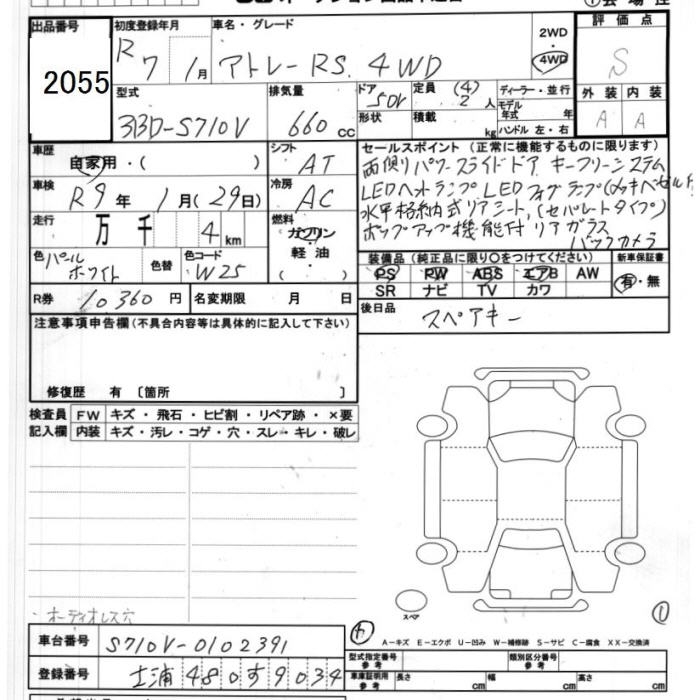 出品番号 2055
初度登録年月 R 7 1月
車名・グレード アトレー RS 4WD
2WD・4WD
評価点 S
外装 A 内装 A
型式 3BD-S710V
排気量 660 cc
ドア 形状 5DV
定員 (4) 2 人
積載 kg
ディーラー・並行
モデル年式 年
ハンドル 左・右
車歴 自家用・( )
シフト AT
車検 R9年 1月(29日)
冷房 AC
走行 万 千 4 km
燃料 ガソリン 軽油・( )
色 パールホワイト
色替
色コード W25
R券 10360円
名変期限 月 日
セールスポイント(正常に機能するものに限ります)
両側パワースライドドア キーフリーシステム
LEDヘッドランプ LEDフォグランプ(メッキベゼル付)
水平格納式リアシート,(セパレートタイプ)
ポップアップ機能付リアガラス
バックカメラ
装備品(純正品に限り○をつけてください)
新車保証書
PS PW ABS エアB AW
SR ナビ TV カワ
有・無
後日品 スペアキー
注意事項申告欄(不具合内容等は具体的に記入して下さい)
修復歴 有 〔箇所 〕
検査員記入欄
FW キズ・飛石・ヒビ割・リペア跡・×要
内装 キズ・汚レ・コゲ・穴・スレ・キレ・破レ
・オーディオレス穴
スペア
①
④
A－キズ E－エクボ U－凹み W－補修跡 S－サビ C－腐食 XX－交換済
車台番号 S710V-0102391
登録番号 土浦 480 す 9034
型式指定番号 参考
類別区分番号 参考
車庫証明用 参考 長さ cm 幅 cm 高さ cm